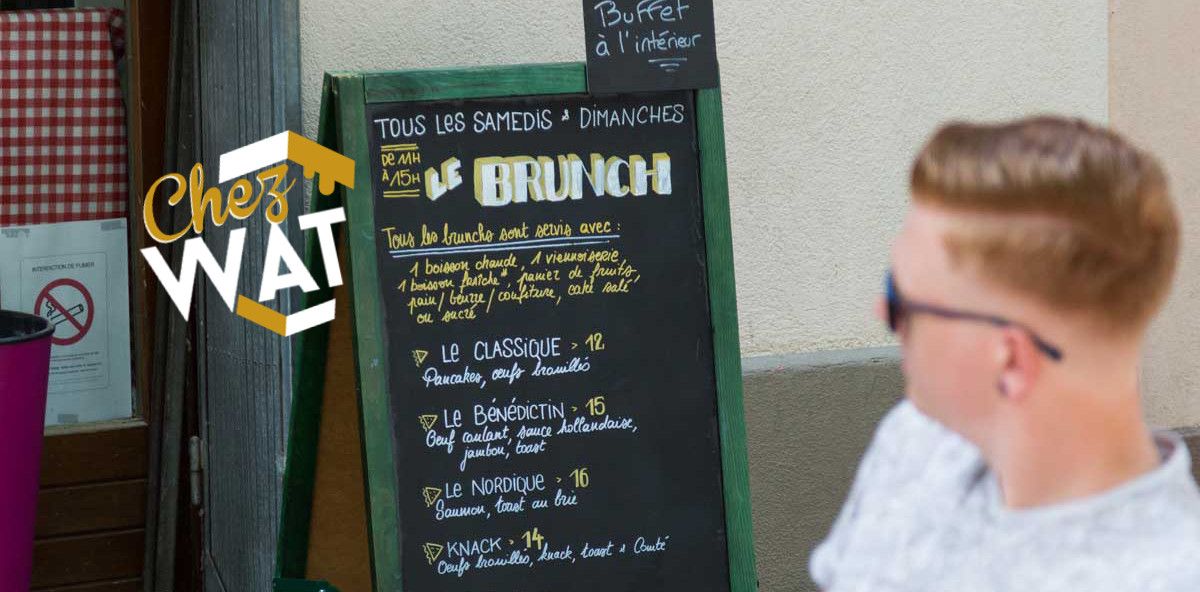 Buffet
à l'intérieur
TOUS LES SAMEDIS & DIMANCHES
DE 11H
À 15H
LE BRUNCH
Tous les brunchs sont servis avec :
1 boisson chaude, 1 viennoiserie,
1 boisson fraîche*, panier de fruits,
pain/beurre/confiture, cake salé,
ou sucré
LE CLASSIQUE > 12
Pancakes, oeufs brouillés
LE BÉNÉDICTIN > 15
Oeuf coulant, sauce hollandaise,
jambon, toast
LE NORDIQUE > 16
Saumon, toast au brie
KNACK > 14
Oeufs brouillés, knack, toast & Comté
Chez
WAT
INTERDICTION DE FUMER